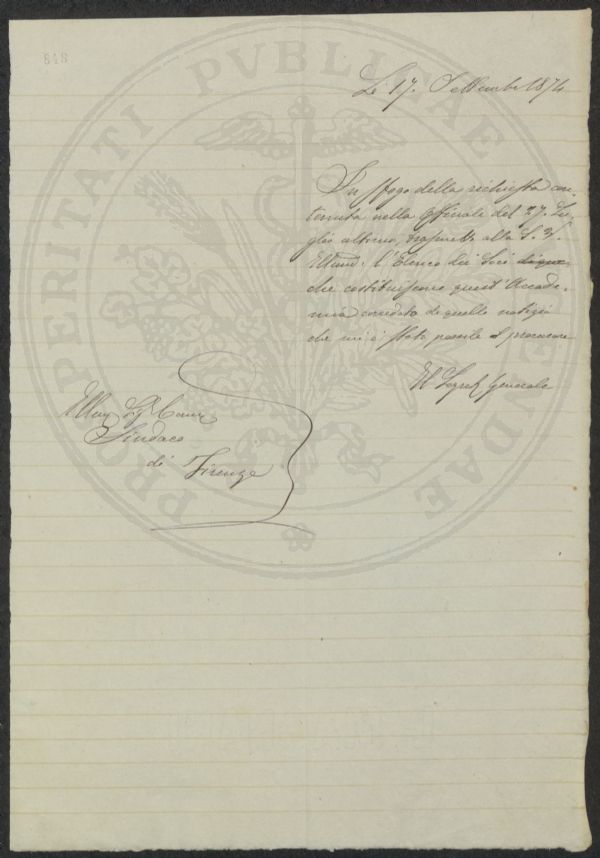 848
PROSPERITATI PVBLICAE AUGENDAE
Li 17. Settembre 1874
In sfogo della richiesta con-
tenuta nella Officiale del 27. Lu-
glio ultimo, trasmetto alla S. V.
Illma. l'Elenco dei Soci
che costituiscono quest'Accade-
mia corredato di quelle notizie
che mi è stato possibile di procurare
Il Segret. Generale
Illmo Sig. Comm
Sindaco
di Firenze